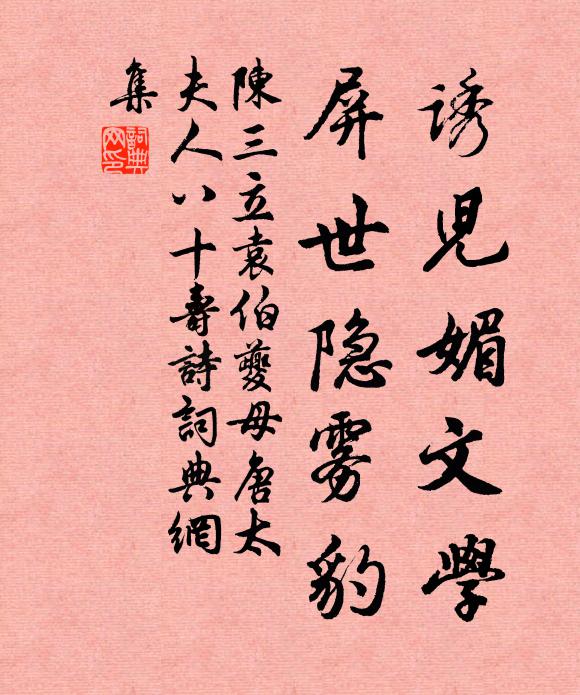 誘兒媚文學
屏世隐雾豹
陳三立袁伯夔母唐太
夫人八十壽詩詞典網
集
詞典網印